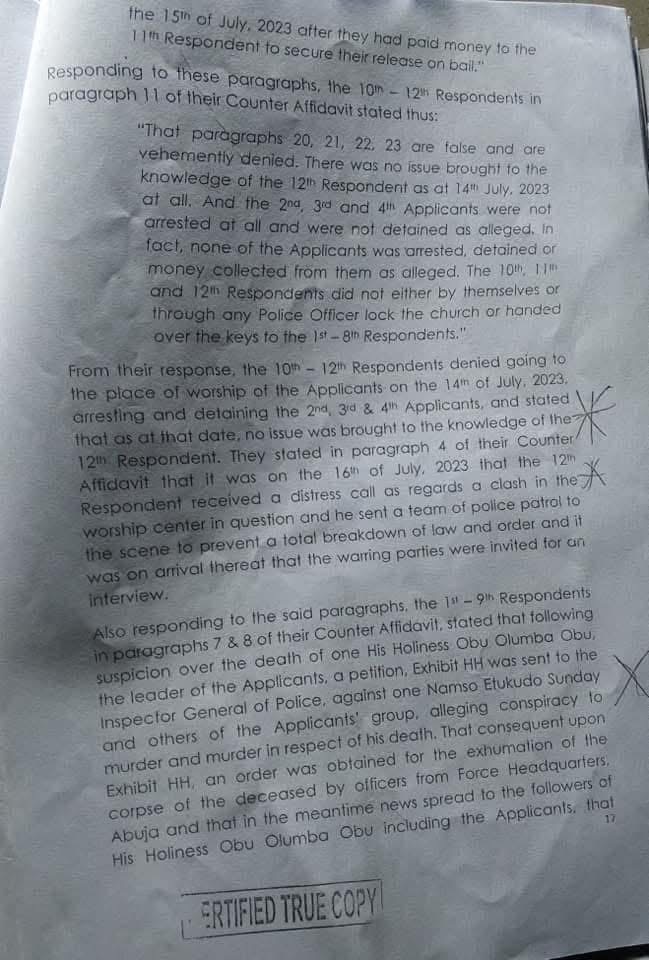 the 15th of July, 2023 after they had paid money to the
11th Respondent to secure their release on bail."
Responding to these paragraphs, the 10th – 12th Respondents in
paragraph 11 of their Counter Affidavit stated thus:
"That paragraphs 20, 21, 22, 23 are false and are
vehemently denied. There was no issue brought to the
knowledge of the 12th Respondent as at 14th July, 2023
at all. And the 2nd, 3rd and 4th Applicants were not
arrested at all and were not detained as alleged. In
fact, none of the Applicants was arrested, detained or
money collected from them as alleged. The 10th, 11th
and 12th Respondents did not either by themselves or
through any Police Officer lock the church or handed
over the keys to the 1st – 8th Respondents."
From their response, the 10th – 12th Respondents denied going to
the place of worship of the Applicants on the 14th of July, 2023,
arresting and detaining the 2nd, 3rd & 4th Applicants, and stated
that as at that date, no issue was brought to the knowledge of the
12th Respondent. They stated in paragraph 4 of their Counter
Affidavit that it was on the 16th of July, 2023 that the 12th
Respondent received a distress call as regards a clash in the
worship center in question and he sent a team of police patrol to
the scene to prevent a total breakdown of law and order and it
was on arrival thereat that the warring parties were invited for an
interview.
Also responding to the said paragraphs, the 1st – 9th Respondents
in paragraphs 7 & 8 of their Counter Affidavit, stated that following
suspicion over the death of one His Holiness Obu Olumba Obu,
the leader of the Applicants, a petition, Exhibit HH was sent to the
Inspector General of Police, against one Namso Etukudo Sunday
and others of the Applicants' group, alleging conspiracy to
murder and murder in respect of his death. That consequent upon
Exhibit HH, an order was obtained for the exhumation of the
corpse of the deceased by officers from Force Headquarters,
Abuja and that in the meantime news spread to the followers of
His Holiness Obu Olumba Obu including the Applicants, that
17
ERTIFIED TRUE COPY